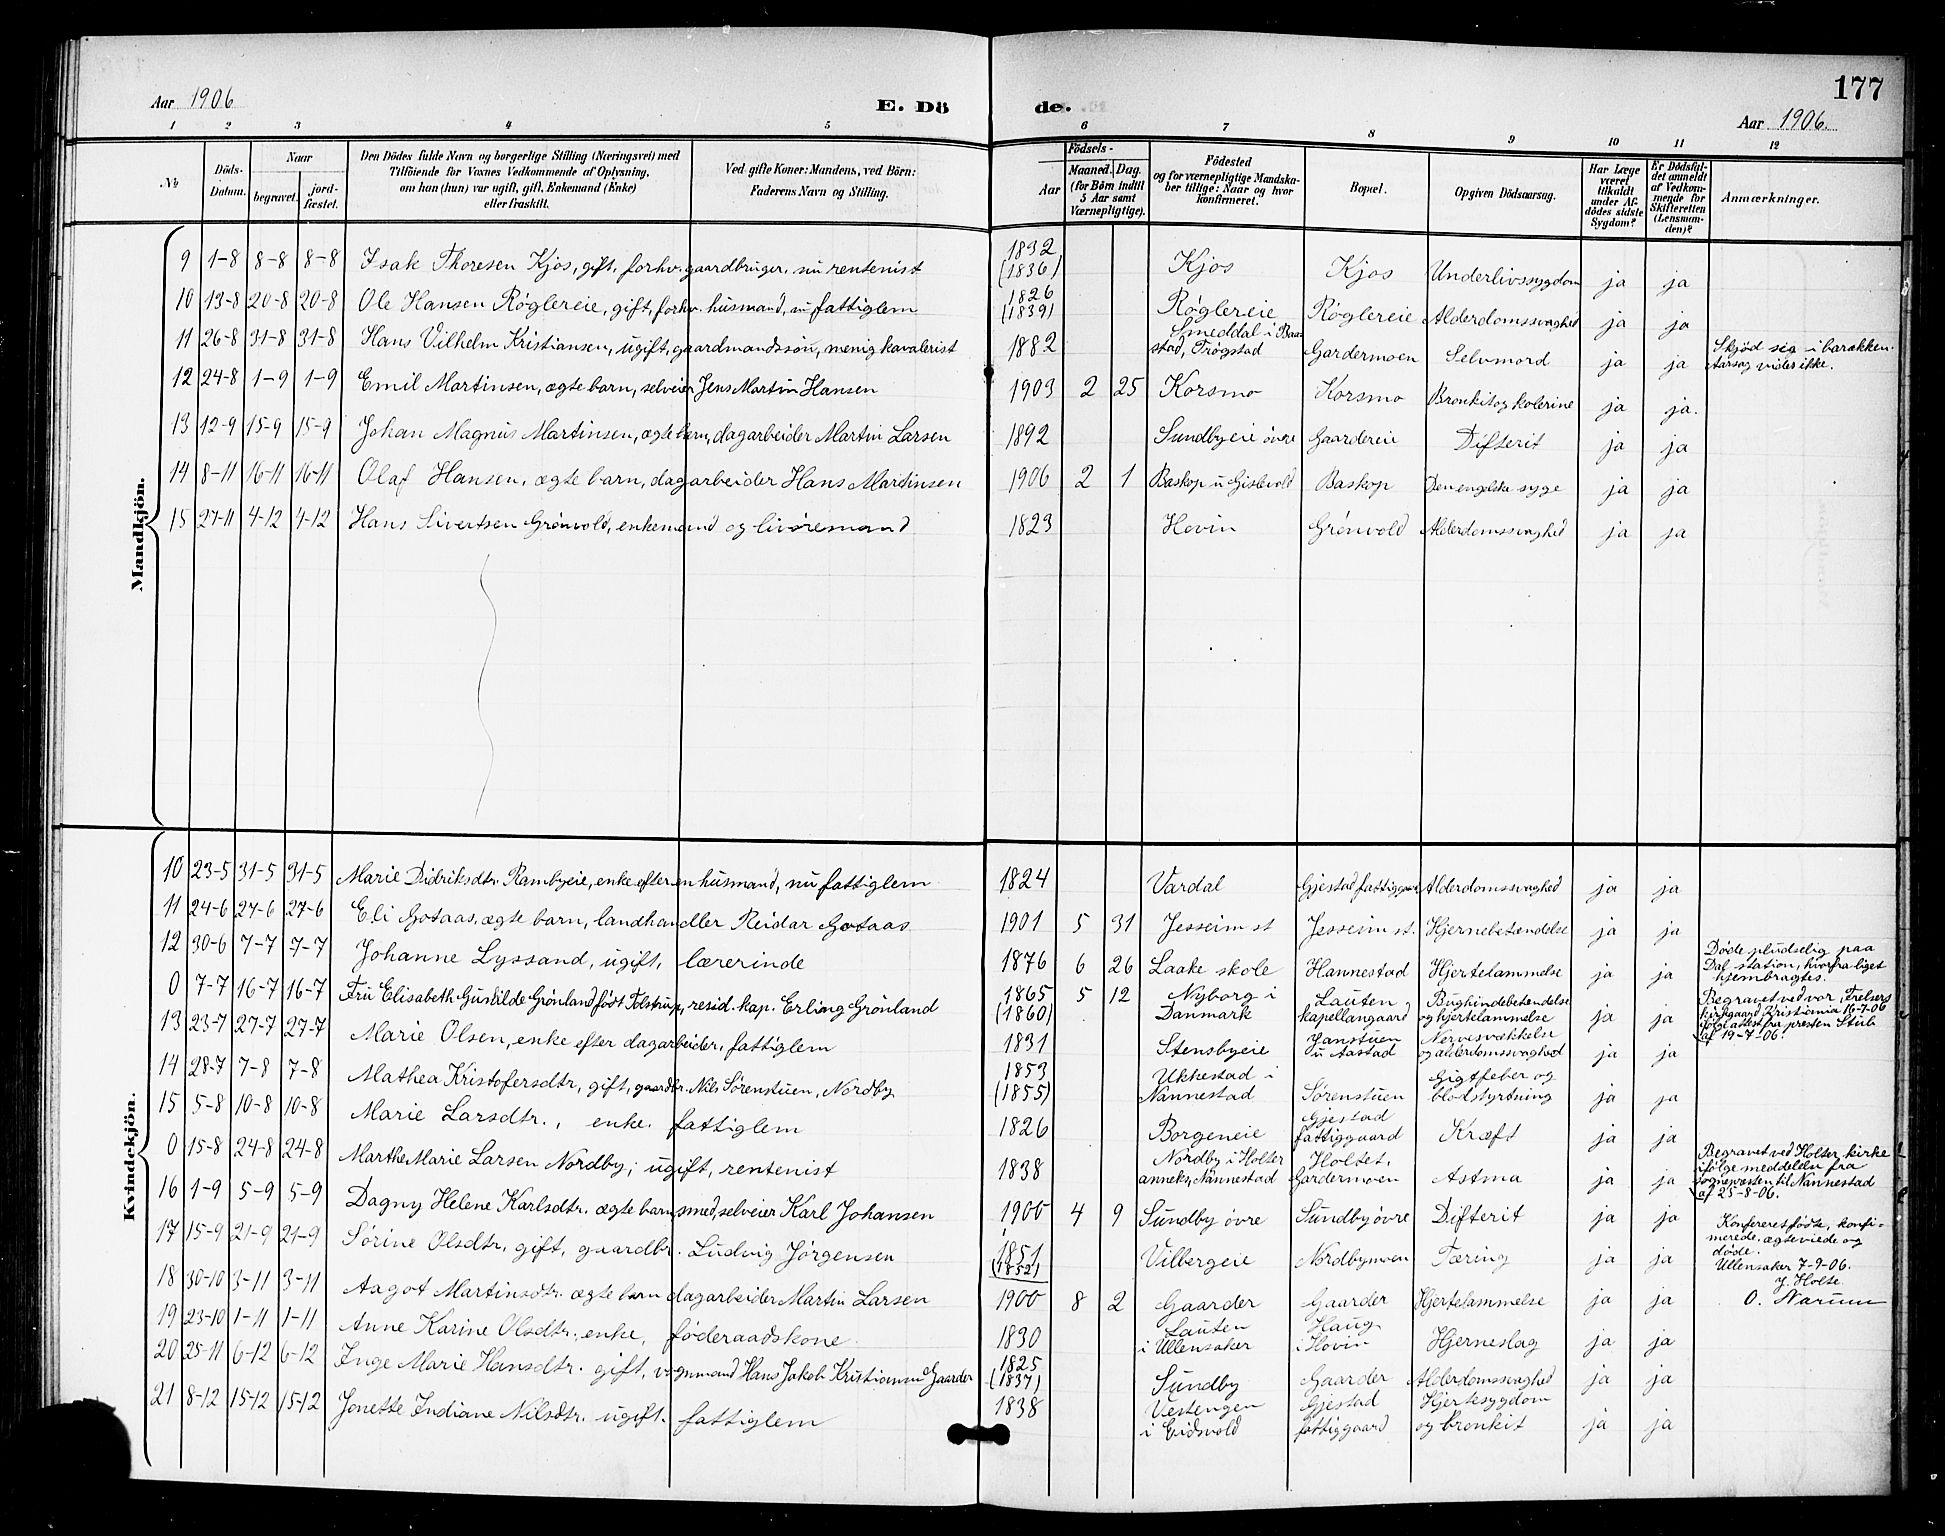 177
Aar 1906 E. Dö de. Aar 1906.
1 2 3 4 5 6 7 8 9 10 11 12
No. Döds-Datum. Naar begravet. jordfæstet. Den Dödes fulde Navn og borgerlige Stilling (Næringsvei) med Tilföiende for Voxnes Vedkommende af Oplysning, om han (hun) var ugift, gift, Enkemand (Enke) eller fraskilt. Ved gifte Koner: Mandens, ved Börn: Faderens Navn og Stilling. Födsels- Aar Maaned. Dag. (for Børn indtil 5 Aar samt Værnepligtige). Födested og for værnepligtige Mandskaber tillige: Naar og hvor konfirmeret. Bopæl. Opgiven Dödsaarsag. Har Læge været tilkaldt under Afdödes sidste Sygdom? Er Dödsfaldet anmeldt af Vedkommende for Skifteretten (Lensmanden)? Anmærkninger.
Mandkjön.
9 1-8 8-8 8-8 Isak Thoresen Kjos, gift, forhv. gaardbruger, nu rentenist 1832 (1836) Kjos Kjos Underlivssygdom ja ja
10 13-8 20-8 20-8 Ole Hansen Røglereie, gift, forhv. husmand, nu fattiglem 1826 (1839) Røglereie Røglereie Alderdomssvaghed ja ja
11 26-8 31-8 31-8 Hans Vilhelm Kristiansen, ugift, gaardmandssøn, menig kavalerist 1882 Smeddal i Baastad, Trøgstad Gardermoen Selvmord ja ja Skjød sig i barakken. Aarsag vides ikke.
12 24-8 1-9 1-9 Emil Martinsen, ægte barn, selveier Jens Martin Hansen 1903 2 25 Korsmo Korsmo Bronkit og kolerine ja ja.
13 12-9 15-9 15-9 Johan Magnus Martinsen, ægte barn, dagarbeider Martin Larsen 1892 Sundbyeie øvre Gaardereie Difterit ja ja
14 8-11 16-11 16-11 Olaf Hansen, ægte barn, dagarbeider Hans Martinsen 1906 2 1 Baskop u Gislevold Baskop Den engelske syge ja ja
15 27-11 4-12 4-12 Hans Sivertsen Grønvold, enkemand og livøresmand 1823 Hovin Grønvold Alderdomssvaghed ja ja
Kvindekjön.
10 23-5 31-5 31-5 Marie Didriksdtr. Rambyeie, enke efter en husmand, nu fattiglem 1824 Vardal Gjestad fattiggaard Alderdomssvaghed ja ja
11 24-6 27-6 27-6 Eli Gotaas, ægte barn, landhandler Reidar Gotaas 1901 5 31 Jesseim st Jesseim st. Hjernebetændelse ja ja
12 30-6 7-7 7-7 Johanne Lyssand, ugift, lærerinde 1876 6 26 Laake skole Hannestad Hjertelammelse ja ja Døde pludselig paa Dal station, hvorfra liget hjembragtes.
0 7-7 16-7 16-7 Fru Elisabeth Gunhilde Grønland født Tolstrup, resid. kap. Erling Grønland 1865 (1860) 5 12 Nyborg i Danmark Lauten kapellangaard Bughindebetændelse og hjertelammelse ja ja Begravet ved vor Frelsers kirkegaard Kristiania 16-7-06 ifølge attest fra presten Stub af 19-7-06.
13 23-7 27-7 27-7 Marie Olsen, enke efter dagarbeider, fattiglem 1831 Stensbyeie Janstuen u Aastad Nervesvækkelse og alderdomssvaghed ja ja
14 28-7 7-8 7-8 Mathea Kristofersdtr., gift, gaardbr. Nils Sørenstuen, Nordby 1853 (1855) Ukkestad i Nannestad Sørenstuen Gigtfeber og blodstyrtning ja ja
15 5-8 10-8 10-8 Marie Larsdtr., enke. fattiglem 1826 Borgeneie Gjestad fattiggaard Kræft ja ja
0 15-8 24-8 24-8 Marthe Marie Larsen Nordby, ugift, rentenist 1838 Nordby i Holter anneks, Nannestad Holtet, Gardermoen Astma ja ja Begravet ved Holter kirke ifølge meddelelse fra sognepresten til Nannestad af 25-8-06.
16 1-9 5-9 5-9 Dagny Helene Karlsdtr. ægte barn smed, selveier Karl Johansen 1900 4 9 Sundby øvre Sundby øvre Difterit ja ja
17 15-9 21-9 21-9 Sørine Olsdtr. gift, gaardbr. Ludvig Jørgensen 1851 (1852) Vilbergeie Nordbymoen Tæring ja ja Konfereret fødte, konfirmerede, ægteviede og døde. Ullensaker 7-9-06. J. Holte O. Narum
18 30-10 3-11 3-11 Aagot Martinsdtr. ægte barn dagarbeider Martin Larsen 1900 8 2 Gaarder Gaarder Hjertelammelse ja ja
19 23-10 1-11 1-11 Anne Karine Olsdtr., enke, føderaadskone 1830 Lauten i Ullensaker Haug i Hovin Hjerneslag ja ja
20 25-11 6-12 6-12 Inge Marie Hansdtr. gift, vognmand Hans Jakob Kristiansen Gaarder 1825 (1837) Sundby Gaarder Alderdomssvaghed ja ja
21 8-12 15-12 15-12 Jonette Indiane Nilsdtr. ugift. fattiglem 1838 Vestengen i Eidsvold Gjestad fattiggaard Hjertesygdom og bronkit ja ja